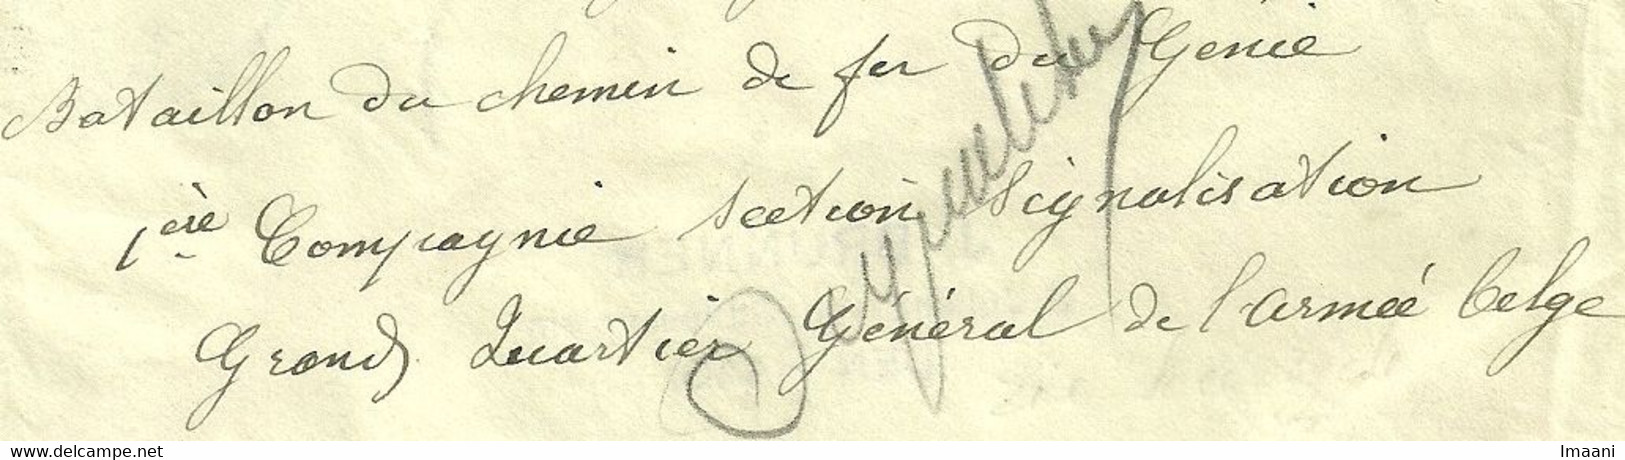 Bataillon du chemin de fer du Génie
1ère Compagnie section signalisation
Grand Quartier Général de l'armée belge
www.delcampe.net
Imaani